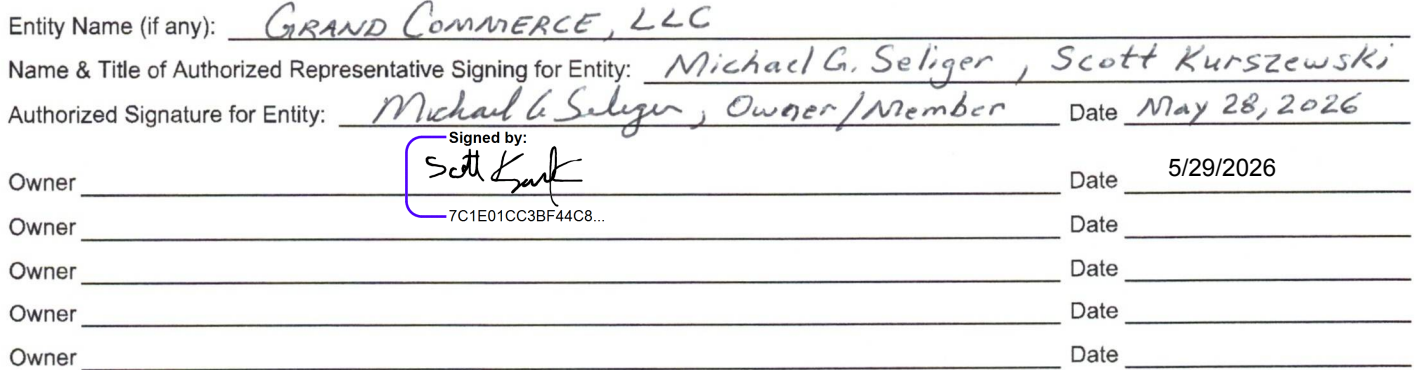 Entity Name (if any): GRAND COMMERCE, LLC
Name & Title of Authorized Representative Signing for Entity: Michael G. Seliger, Scott Kurszewski
Authorized Signature for Entity: Michael G Seliger, Owner/Member Date May 28, 2026
Signed by:
Owner Scott Date 5/29/2026
7C1E01CC3BF44C8...
Owner Date
Owner Date
Owner Date
Owner Date